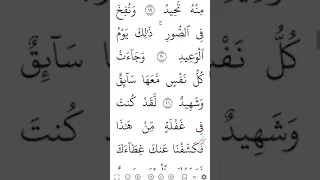 مِنْهُ تَحِيدُ ١٩ وَنُفِخَ
فِى ٱلصُّورِ ۚ ذَٰلِكَ يَوْمُ
ٱلْوَعِيدِ ٢٠ وَجَآءَتْ
كُلُّ نَفْسٍ مَّعَهَا سَآئِقٌ
وَشَهِيدٌ ٢١ لَّقَدْ كُنتَ
فِى غَفْلَةٍ مِّنْ هَٰذَا
فَكَشَفْنَا عَنكَ غِطَآءَكَ